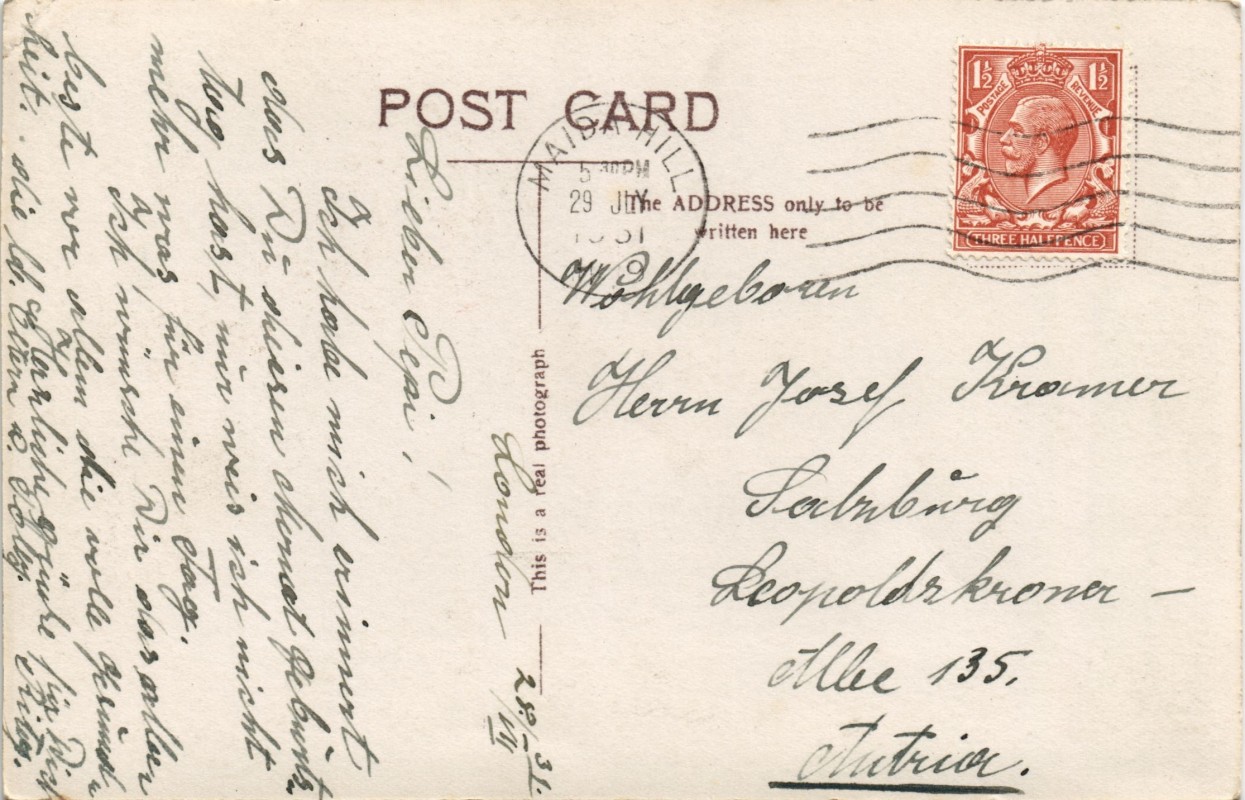 POST CARD
The ADDRESS only to be
written here
This is a real photograph
1½ 1½
POSTAGE REVENUE
THREE HALFPENCE
MAIDA HILL
5 30 PM
29 JLY
1931
W.9
London 28./VII 31.
Lieber Pepi!
Ich habe mich erinnert
das Du diesen Monat Gebürts-
tag hast, nur weis ich nicht
mehr was für einen Tag.
Ich wünsche Dir das aller
beste vor allem die vole Gesünd-
heit. Herzliche Grüße für Dich
die lb. Eltern u. Poldy.
Wohlgeboren
Herrn Josef Kramer
Salzbŭrg
Leopoldskroner -
Allee 135.
Autria.